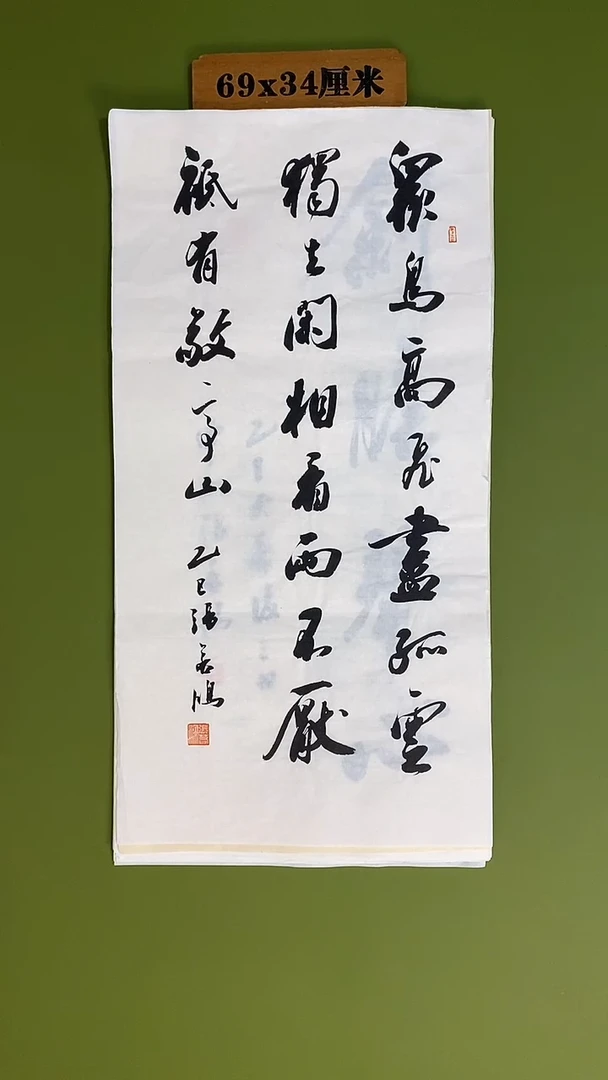 69x34厘米
眾鳥高飛盡孤雲
獨去閑相看兩不厭
祗有敬亭山 乙巳張